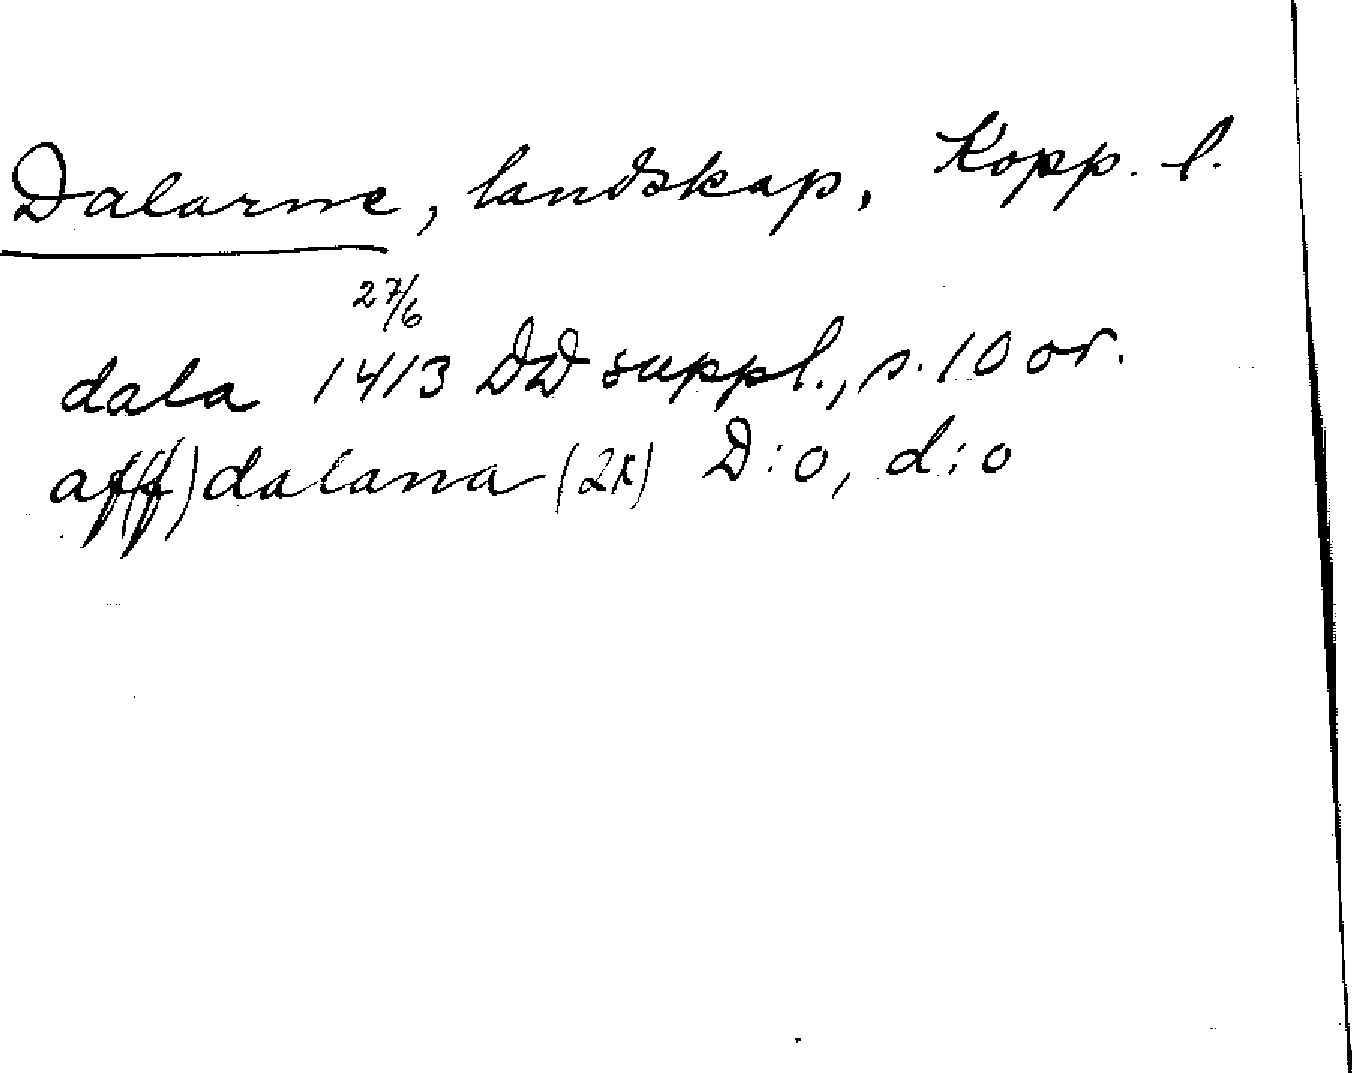 Dalarne, landskap, Kopp. l.
27/6
dala 1413 DD suppl., s. 10 or.
af(f) dalana (2x) D:o, d:o